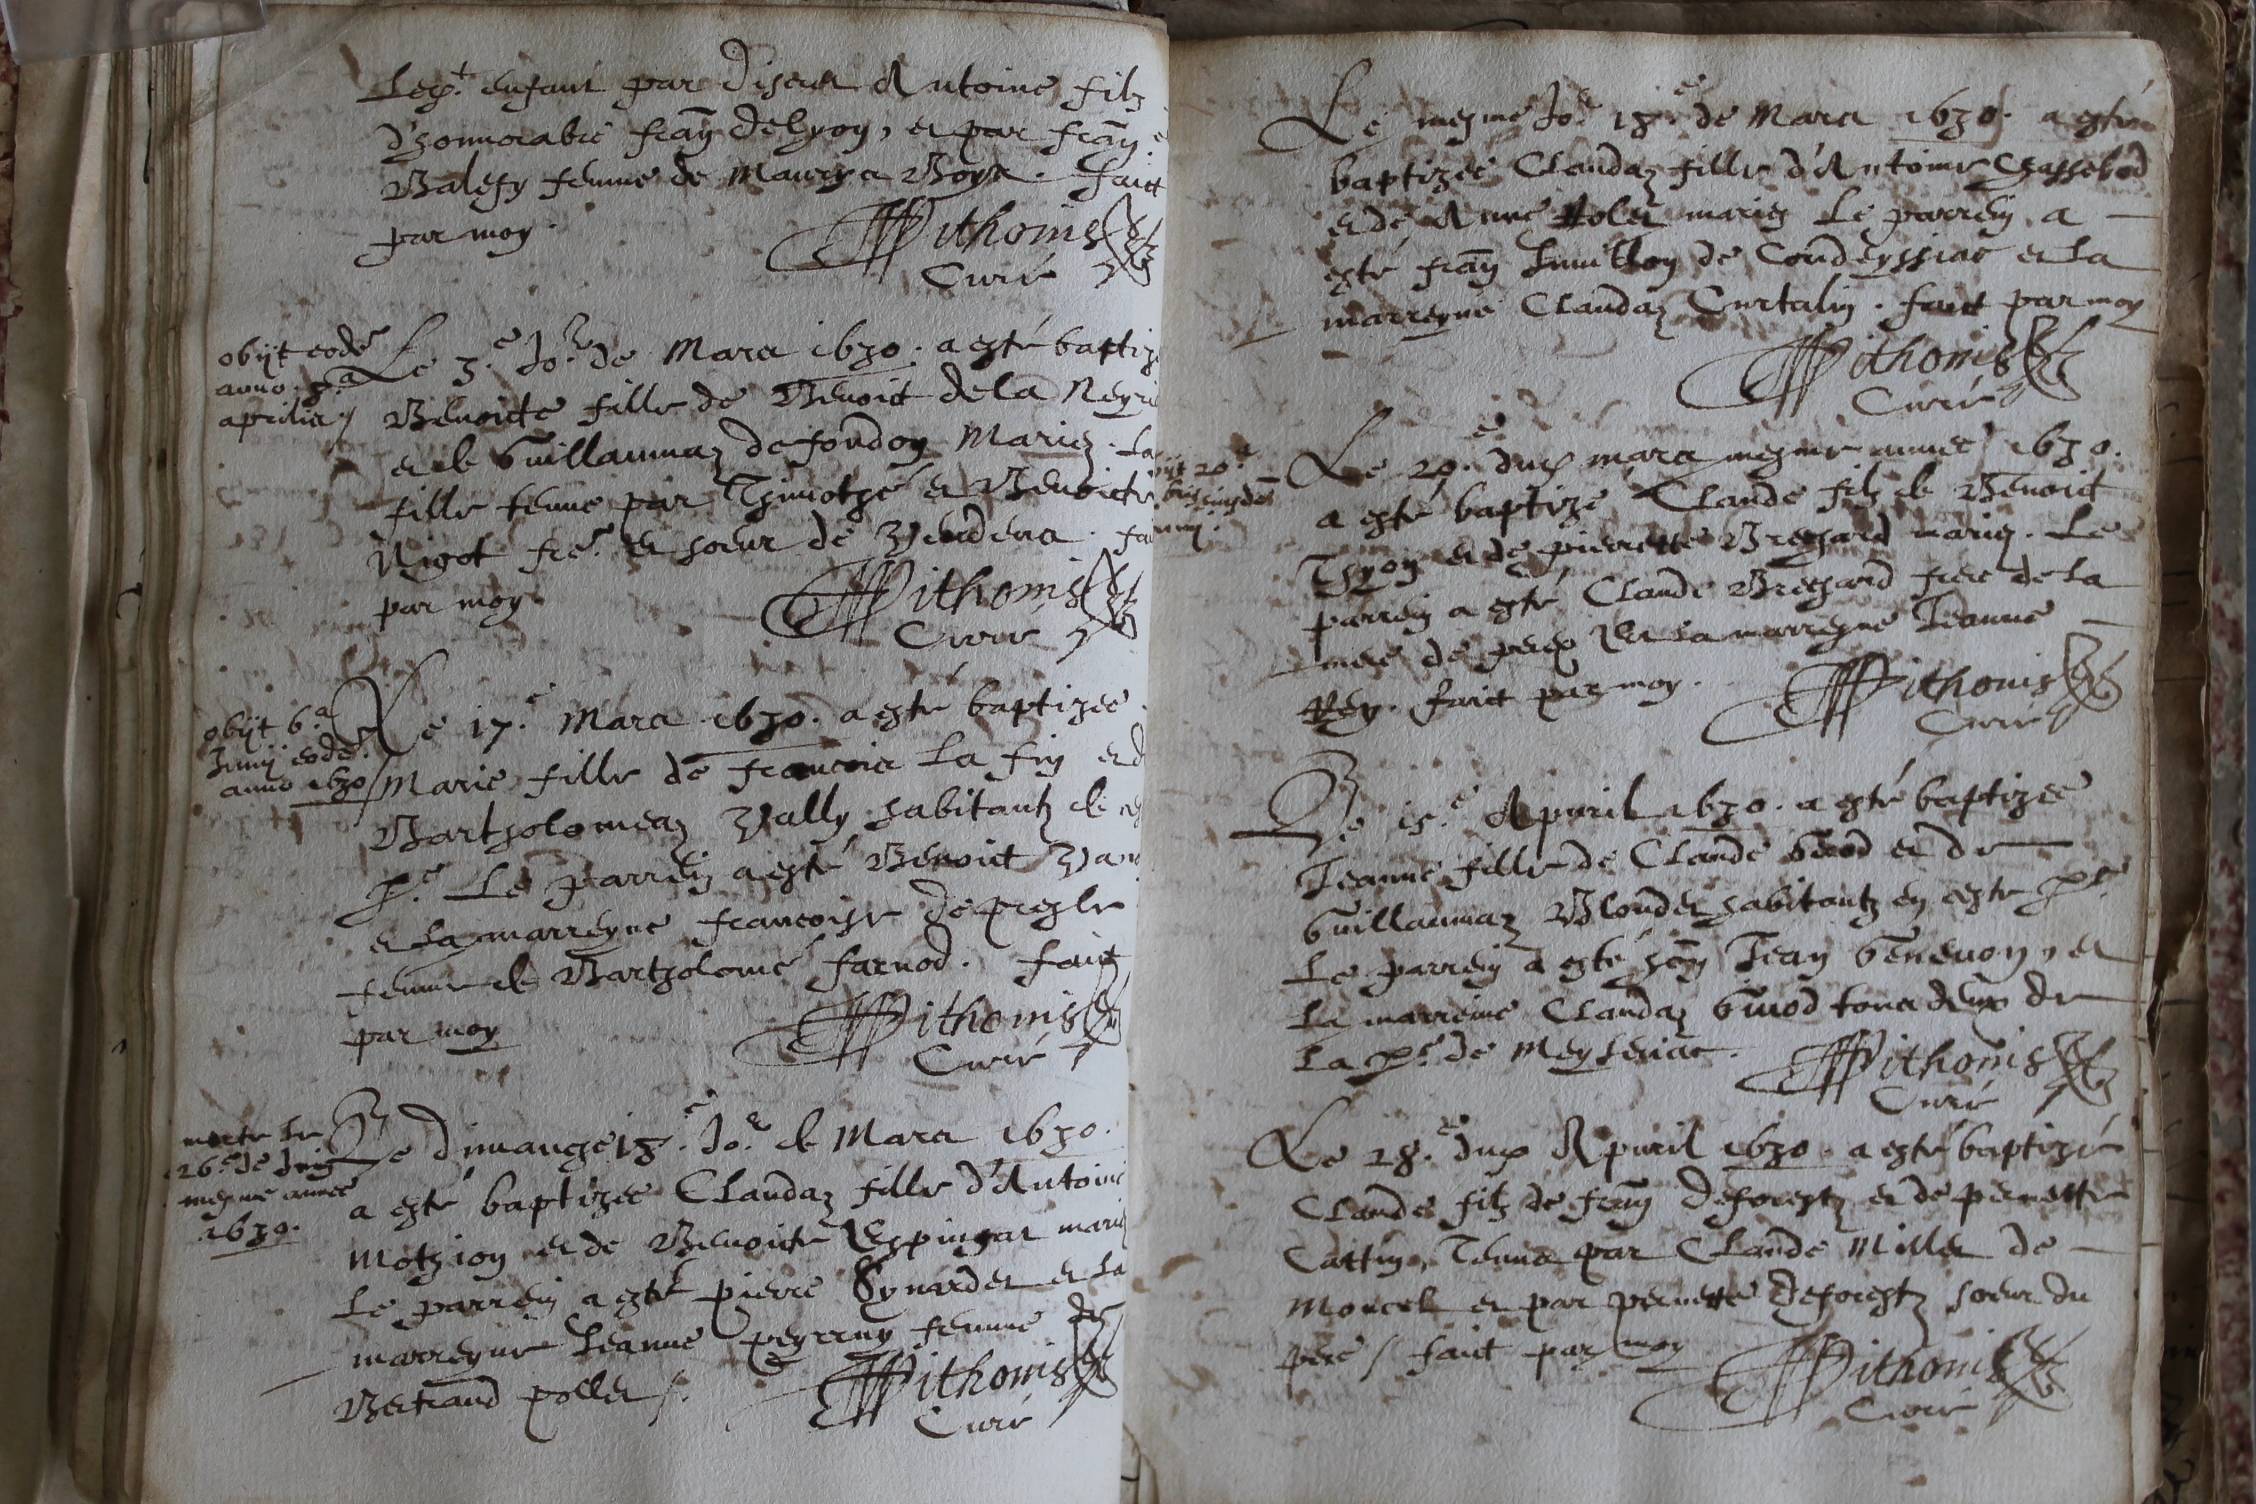 Led.t enfant par discret Antoine filz
d'honnorable fran̄ Delyon, et par fran̄
Balesy femme de Maurys Boya. faict
par moy.
Pithonis
Curé
obijt eodē
anno. 3.a
aprilis
Le 3.e Jo.r de Mars 1630. a esté baptizé
Benoicte fille de Benoict de la Neyri
et de Guillaumaz Defondon Mariez. La
fille tenue par Thimothé et Benoicte
Nigot fre.e et sœur de Vendens. fai
par moy.
Pithonis
Curé
obijt 6.a
Junij eodē
anno 1630
Le 17.e Mars 1630. a esté baptizee
Marie fille de francois La fin et d
Bartholomeaz Vally habitantz de
p.e Le parrein a esté Benoict
et la marreyne francoise de presle
femme de Bartholomé farnod. faict
par moy
Pithonis
Curé
morte le
26.e de Juin
mesme annee
1630.
Le dimanche 18.e Jo.r de Mars 1630.
a esté baptizee Claudaz fille d'Antoine
Mothion et de Benoicte Espingat marie
Le parrein a esté pierre Synardet et la
marreyne Jeanne peyrruy femme de
Bertrand pollet
Pithonis
Curé
Le mesme Jo.r 18.e de Mars 1630. a esté
baptizee Claudaz fille d'Antoine Chassebod
et de Anne Rolet mariez Le parrein a
esté fran̄ de Condeyssiat et la
marreyne Claudaz Curtalin. faict par moy
Pithonis
Curé
20.e
Le 20.e dud mars mesme annee 1630.
a esté baptizé Claude filz de Benoict
Thyon et de pierrette Brechard mariez. Le
parrein a esté Claude Brechard frere de la
mere de Et la marreyne Jeanne
Rey. faict par moy.
Pithonis
Curé
Le 15.e Apuril 1630. a esté baptizee
Jeanne fille de Claude et de
Guillaumaz Blondet habitantz en ceste p.sse
Le parrein a esté hon̄ Jean Genevon, et
La marreine Claudaz tous deux de
la p.sse de Meyseriat.
Pithonis
Curé
Le 28.e dud Apuril 1630. a esté baptizé
Claude filz de fran̄ Deforestz et de pernette
Cattin, Tenus par Claude Millet de
Moncel et par pernette Deforestz sœur du
pere / faict par moy
Pithonis
Curé